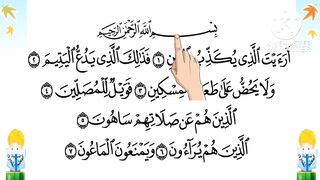 بِسْمِ اللَّهِ الرَّحْمَٰنِ الرَّحِيمِ
أَرَءَيْتَ الَّذِي يُكَذِّبُ ۝١ فَذَٰلِكَ الَّذِي يَدُعُّ الْيَتِيمَ ۝٢
وَلَا يَحُضُّ عَلَىٰ ۝٣ فَوَيْلٌ لِّلْمُصَلِّينَ ۝٤
الَّذِينَ هُمْ عَن صَلَاتِهِمْ سَاهُونَ ۝٥
الَّذِينَ هُمْ يُرَاءُونَ ۝٦ وَيَمْنَعُونَ الْمَاعُونَ ۝٧